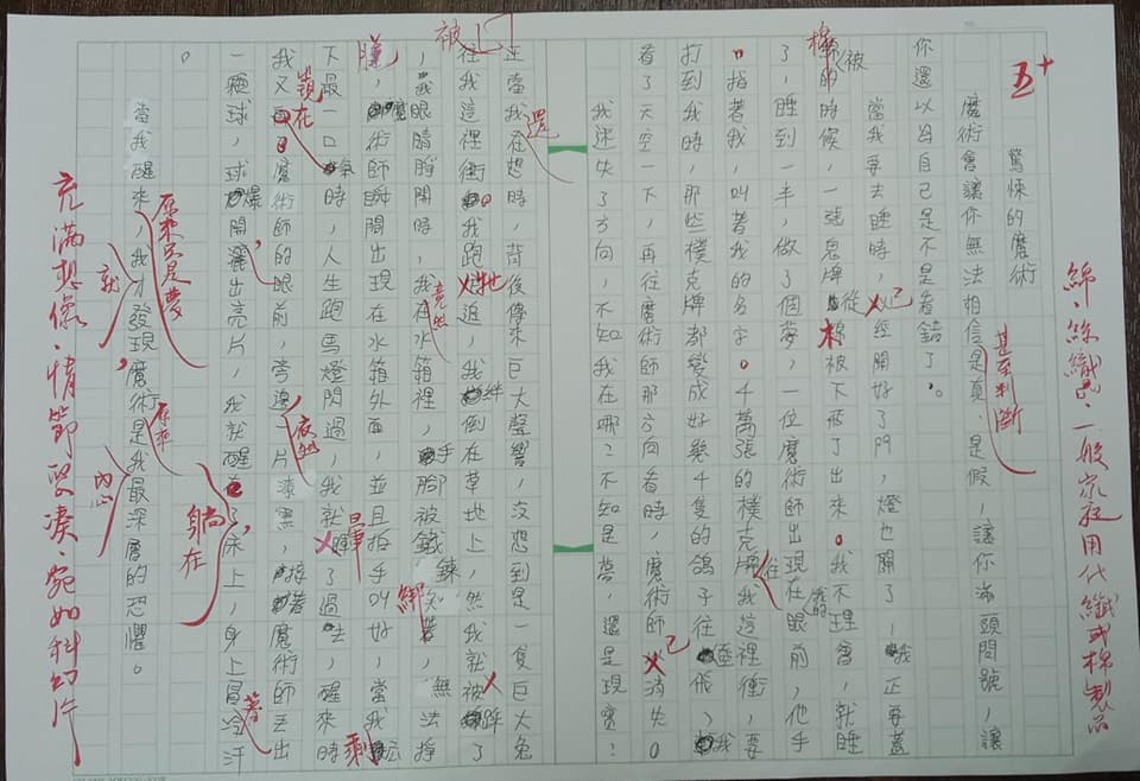 綿、絲織品，一般家庭用代纖或棉製品
五+
驚悚的魔術
魔術會讓你無法相信是真、是假，讓你滿頭問號，讓
甚至判斷
你還以為自己是不是看錯了。
當我要去睡時，已經開好了門，燈也關了，我正要蓋
棉被的時候，一張鬼牌從棉被下飛了出來。我不理會，就睡
了，睡到一半，做了個夢，一位魔術師出現在我的眼前，他手
指著我，叫著我的名字。千萬張的樸克牌往我這裡衝，要
打到我時，那些樸克牌都變成好幾千隻的鴿子往
看了天空一下，再往魔術師那方向看時，魔術師已消失。
我迷失了方向，不知我在哪？不知是夢，還是現實？
正當我還在想時，背後傳來巨大聲響，沒想到是一隻巨大兔
往我這裡衝。我跑，我絆倒在草地上，然我就被踩了
，我眼睛睜開時，我竟然在水箱裡，手腳被鐵鍊綁著，無法掙
，魔術師瞬間出現在水箱外面，並且拍手叫好，當我
下最一口氣時，人生跑馬燈閃過，我就暈了過去，醒來時
剩
我又出現在魔術師的眼前，旁邊依然一片漆黑，接著魔術師丟出
一顆球，球爆開，灑出亮片，我就醒了，躺在床上，身上冒著冷汗
。
當我醒來，我才發現，魔術是我最深層的恐懼。
原來只是夢
就
原來
內心
充滿想像，情節緊湊，宛如科幻片